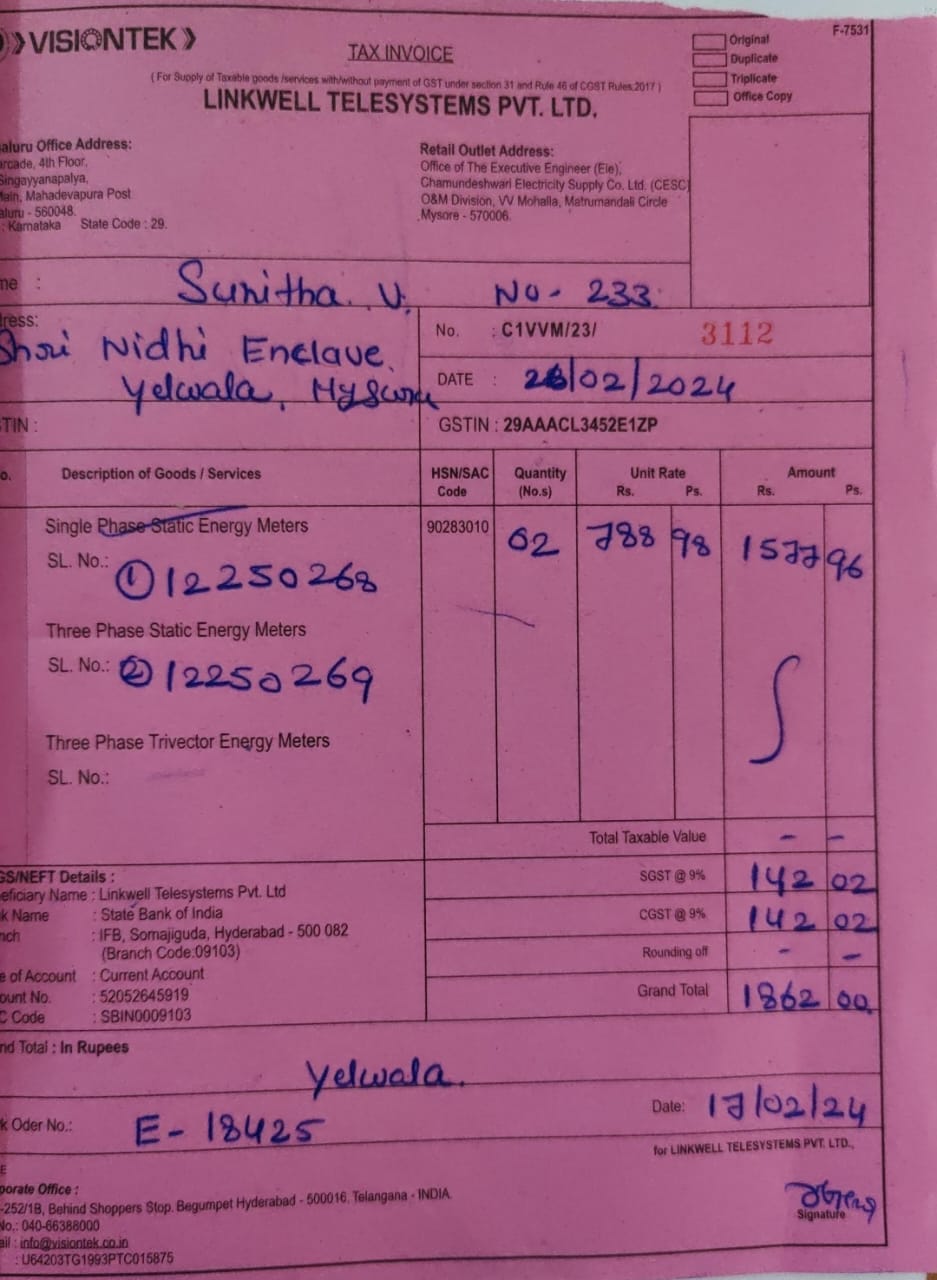 VISIONTEK
TAX INVOICE
Original
F-7531
Duplicate
Triplicate
Office Copy
( For Supply of Taxable goods /services with/without payment of GST under section 31 and Rule 46 of CGST Rules,2017 )
LINKWELL TELESYSTEMS PVT. LTD.
aluru Office Address:
arcade, 4th Floor,
Singayyanapalya,
Main, Mahadevapura Post
aluru - 560048.
: Karnataka State Code : 29.
Retail Outlet Address:
Office of The Executive Engineer (Ele),
Chamundeshwari Electricity Supply Co. Ltd. (CESC)
O&M Division, VV Mohalla, Matrumandali Circle
Mysore - 570006.
me : Sunitha. V. No - 233
ress:
Shri Nidhi Enclave.
Yelwala,
No. : C1VVM/23/ 3112
DATE : /02/2024
TIN :
GSTIN : 29AAACL3452E1ZP
o. Description of Goods / Services HSN/SAC Code Quantity (No.s) Unit Rate Rs. Ps. Amount Rs. Ps.
Single Phase Static Energy Meters 90283010 02 788 98 1577 96
SL. No.: ① 12250268
Three Phase Static Energy Meters
SL. No.: ② 12250269
Three Phase Trivector Energy Meters
SL. No.:
Total Taxable Value - -
SGST @ 9% 142 02
CGST @ 9% 142 02
Rounding off - -
Grand Total 1862 00
GS/NEFT Details :
eficiary Name : Linkwell Telesystems Pvt. Ltd
k Name : State Bank of India
nch : IFB, Somajiguda, Hyderabad - 500 082
(Branch Code:09103)
e of Account : Current Account
ount No. : 52052645919
C Code : SBIN0009103
nd Total : In Rupees
Yelwala.
k Oder No.: E - 18425
Date: 17/02/24
for LINKWELL TELESYSTEMS PVT. LTD.,
E
porate Office :
-252/1B, Behind Shoppers Stop. Begumpet Hyderabad - 500016. Telangana - INDIA.
No.: 040-66388000
ail : info@visiontek.co.in
: U64203TG1993PTC015875
Signature